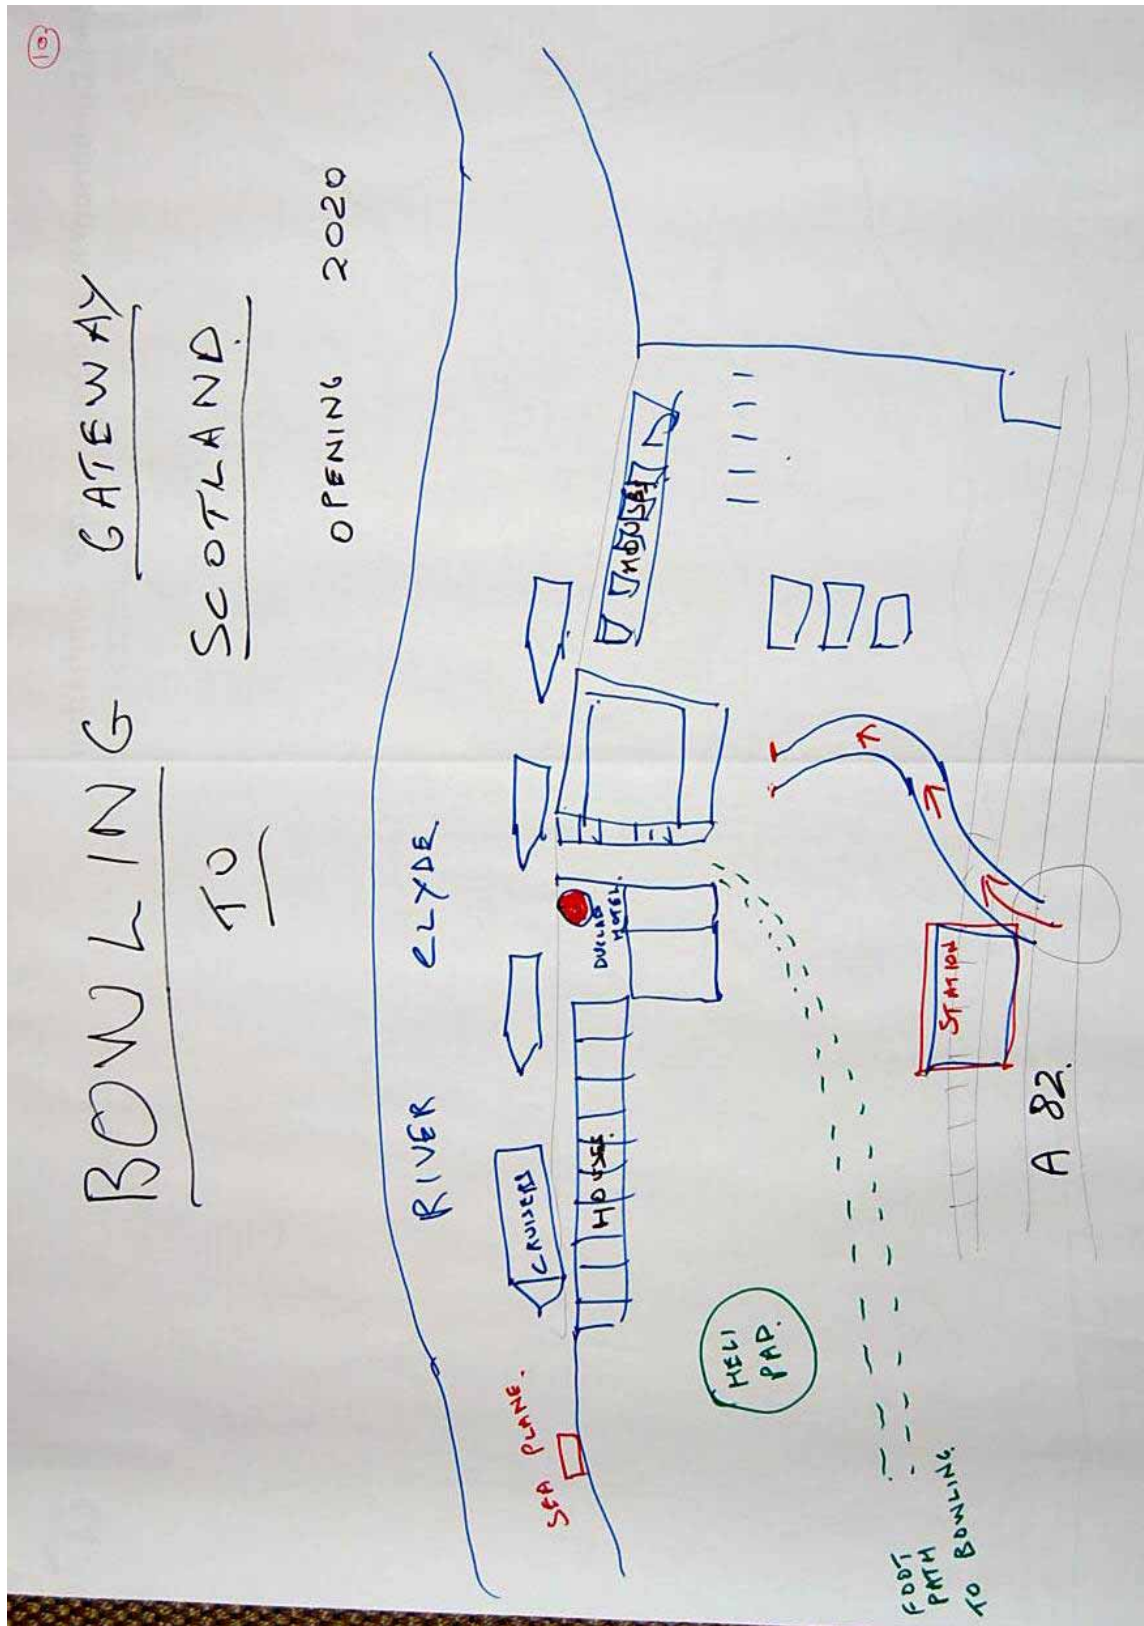 10
BOWLING GATEWAY
TO SCOTLAND.
OPENING 2020
RIVER CLYDE
SEA PLANE.
CRUISERS
HOUSES
HOTEL.
HOUSES
HELI
PAD.
STATION
A 82.
FOOT
PATH
TO BOWLING.